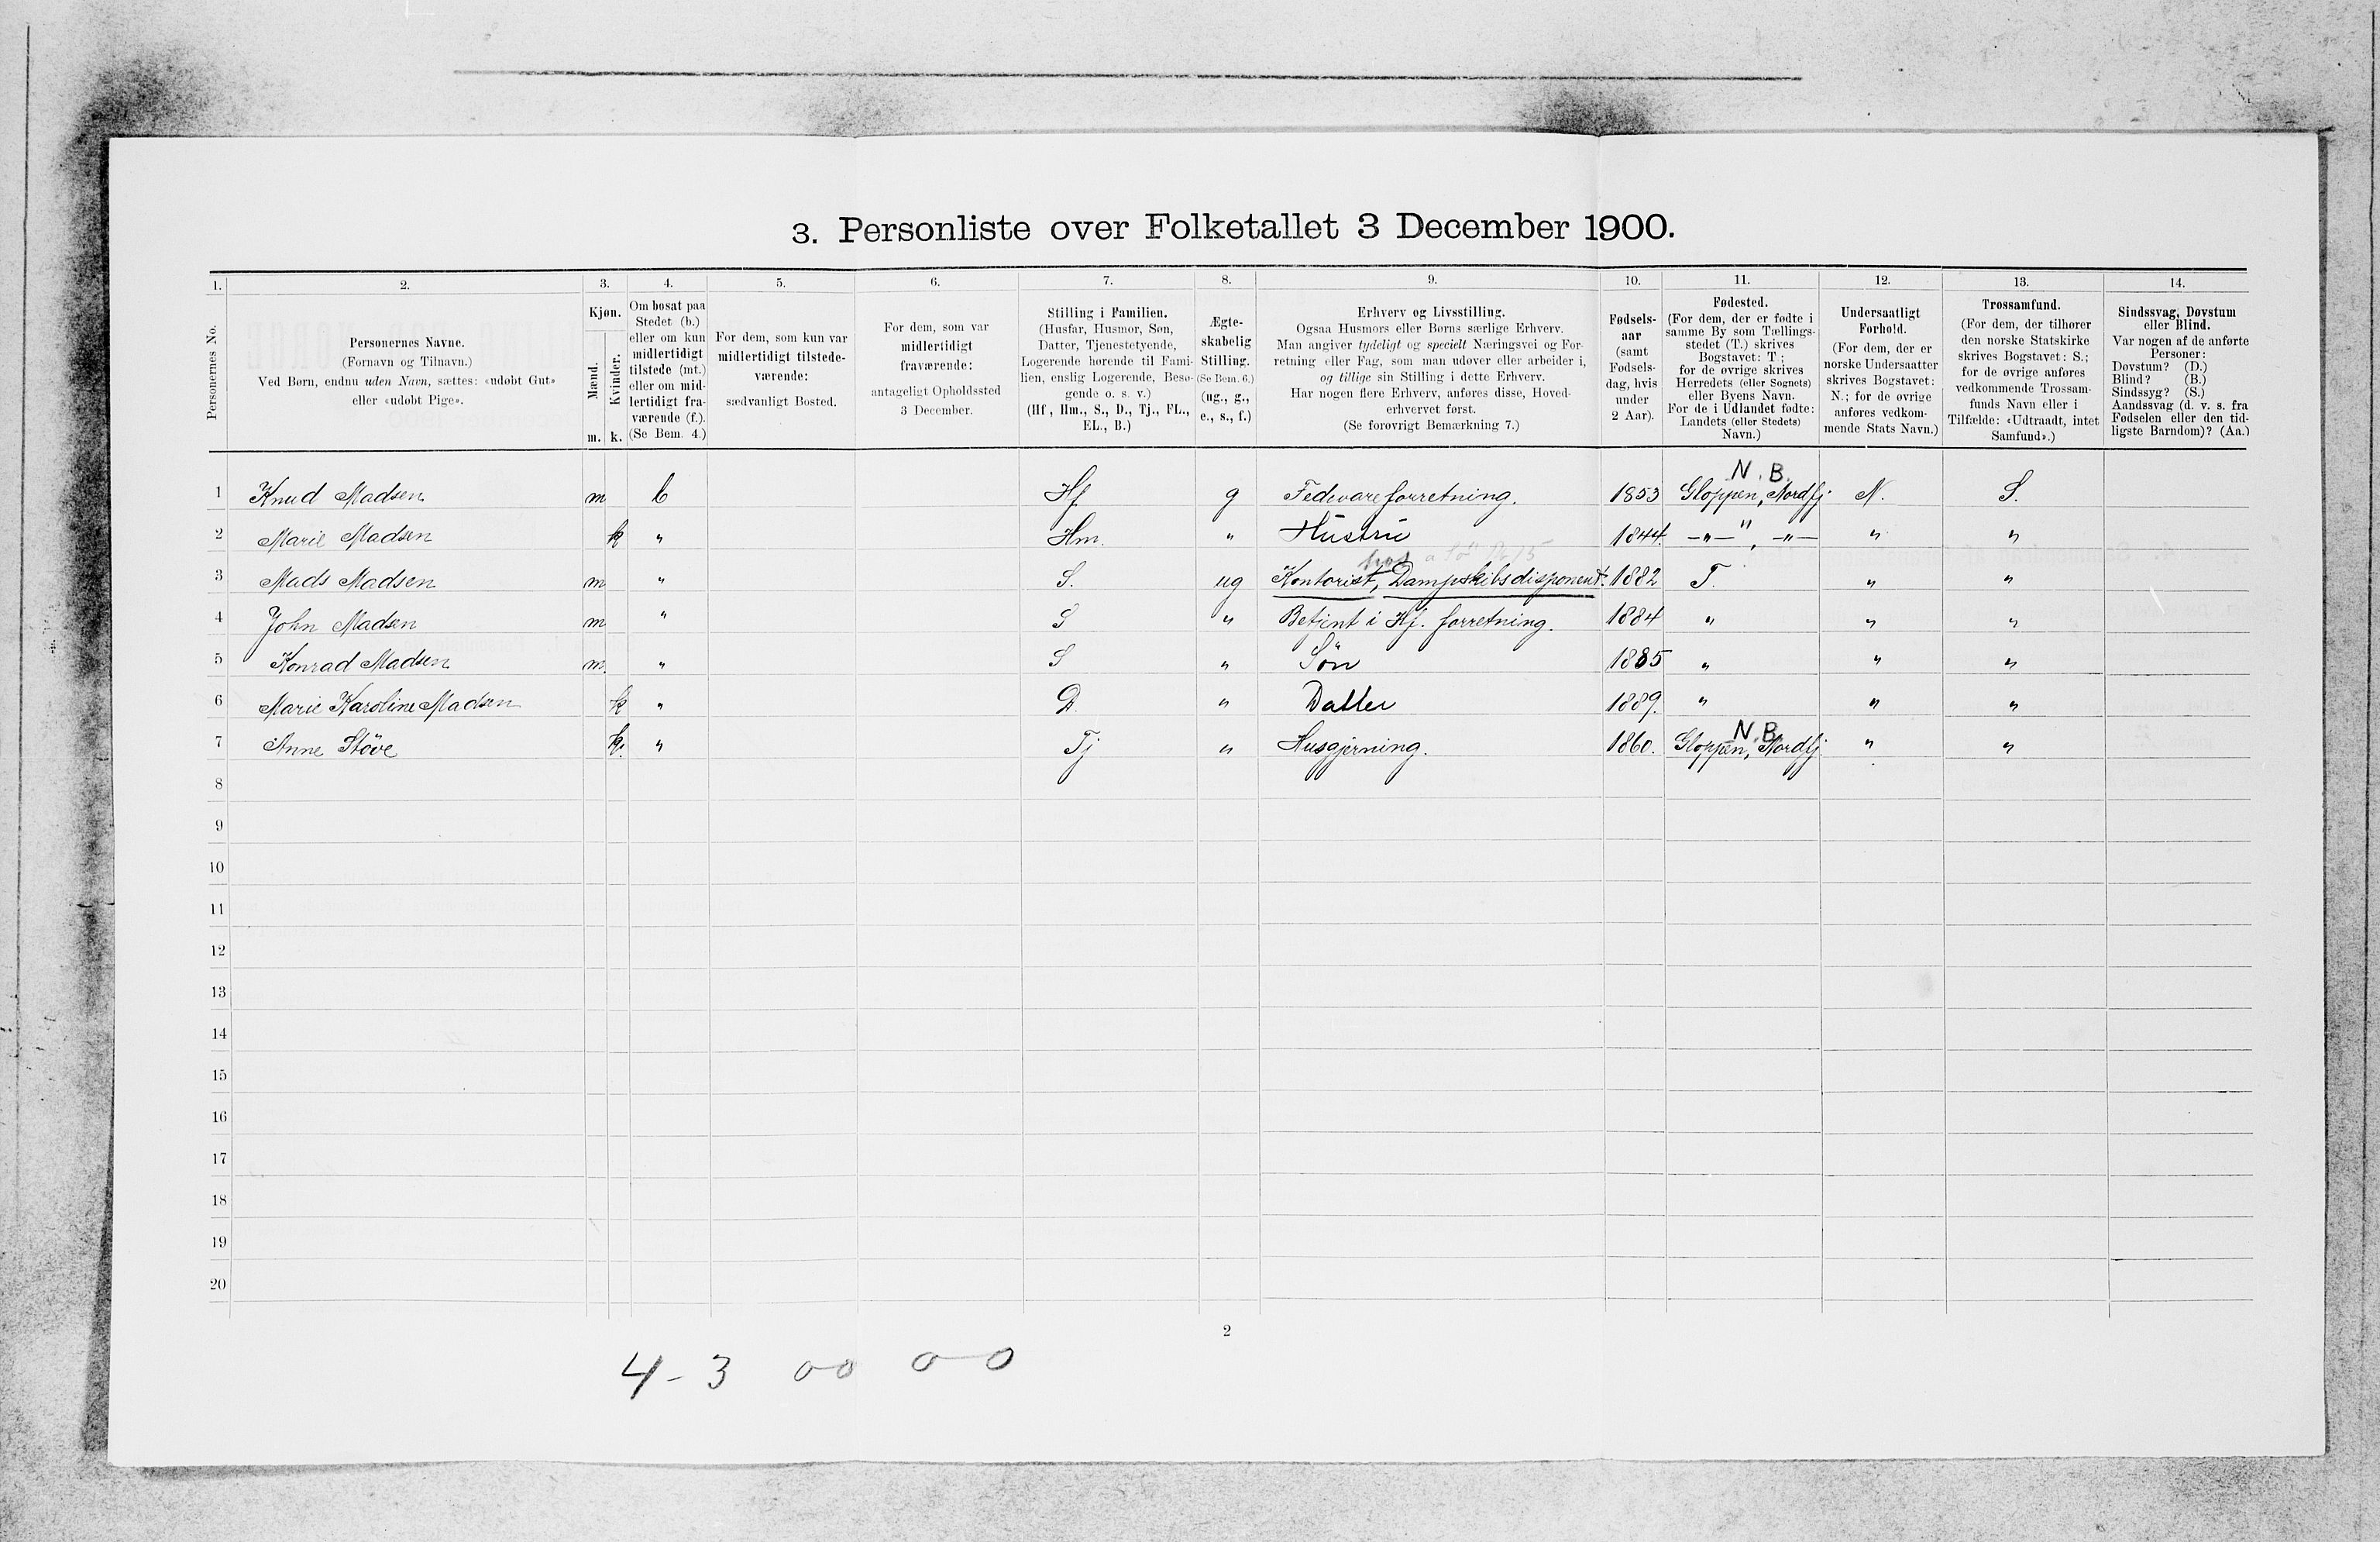 3. Personliste over Folketallet 3 December 1900.
1. 2. 3. 4. 5. 6. 7. 8. 9. 10. 11. 12. 13. 14.
Personernes No.
Personernes Navne.
(Fornavn og Tilnavn.)
Ved Børn, endnu uden Navn, sættes: «udøbt Gut»
eller «udøbt Pige».
Kjøn.
Mænd.
Kvinder.
m. k.
Om bosat paa
Stedet (b.)
eller om kun
midlertidigt
tilstede (mt.)
eller om mid-
lertidigt fra-
værende (f.).
(Se Bem. 4.)
For dem, som kun var
midlertidigt tilstede-
værende:
sædvanligt Bosted.
For dem, som var
midlertidigt
fraværende:
antageligt Opholdssted
3 December.
Stilling i Familien.
(Husfar, Husmor, Søn,
Datter, Tjenestetyende,
Logerende hørende til Fami-
lien, enslig Logerende, Besø-
gende o. s. v.)
(Hf., Hm., S., D., Tj., FL.,
EL., B.)
Ægte-
skabelig
Stilling.
(Se Bem. 6.)
(ug., g.,
e., s., f.)
Erhverv og Livsstilling.
Ogsaa Husmors eller Børns særlige Erhverv.
Man angiver tydeligt og specielt Næringsvei og For-
retning eller Fag, som man udøver eller arbeider i,
og tillige sin Stilling i dette Erhverv.
Har nogen flere Erhverv, anføres disse, Hoved-
erhvervet først.
(Se forøvrigt Bemærkning 7.)
Fødsels-
aar
(samt
Fødsels-
dag, hvis
under
2 Aar).
Fødested.
(For dem, der er fødte i
samme By som Tællings-
stedet (T.) skrives
Bogstavet: T;
for de øvrige skrives
Herredets (eller Sognets)
eller Byens Navn.
For de i Udlandet fødte:
Landets (eller Stedets)
Navn.)
Undersaatligt
Forhold.
(For dem, der er
norske Undersaatter
skrives Bogstavet:
N.; for de øvrige
anføres vedkom-
mende Stats Navn.)
Trossamfund.
(For dem, der tilhører
den norske Statskirke
skrives Bogstavet: S.;
for de øvrige anføres
vedkommende Trossam-
funds Navn eller i
Tilfælde: «Udtraadt, intet
Samfund».)
Sindssvag, Døvstum
eller Blind.
Var nogen af de anførte
Personer:
Døvstum? (D.)
Blind? (B.)
Sindssyg? (S.)
Aandssvag (d. v. s. fra
Fødselen eller den tid-
ligste Barndom)? (Aa.)
N. B.
1 Knud Madsen m b Hf g Fedevareforretning. 1853 Gloppen, Nordfj. N. S.
2 Marie Madsen k " Hm. " Hustru 1844. —"—", —"— " "
hos
3 Mads Madsen m " S. ug Kontorist, Dampskibsdisponent. 1882 T. " "
4 John Madsen m " S " Betjent i Hf. forretning. 1884 " " "
5 Konrad Madsen m. " S " Sön 1885 " " "
6 Marie Karoline Madsen k " D. " Datter 1889. " " "
N. B.
7 Anne Støve k. " Tj " Husgjerning. 1860. Gloppen, Nordfj. " "
8
9
10
11
12
13
14
15
16
17
18
19
20
2
4 - 3 00 0-0